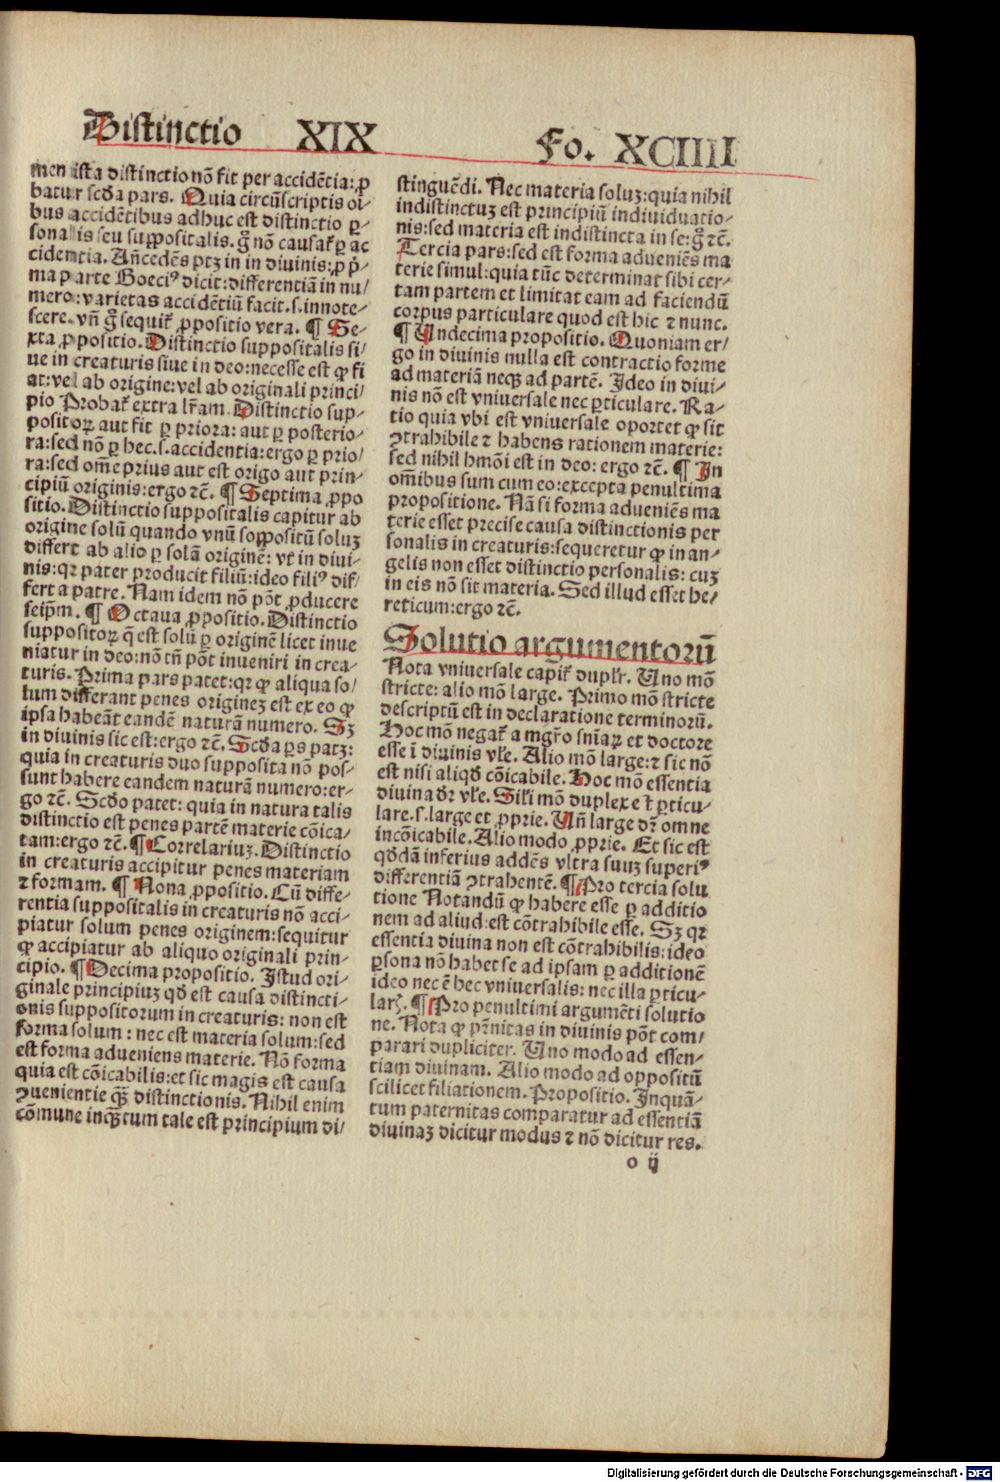 Distinctio XIX Fo. XCIIII
men ista distinctio nō fit per accidētia: ꝓ
batur scḋa pars. Quia circūscriptis oī/
bus accidētibus adhuc est distinctio ꝑ-
sonalis seu suppositalis. gͦ nō causat̄ ꝑ ac
cidentia. Añcedēs ptꝫ in in diuinis: ꝓ p̄/
ma parte Boeciꝰ dicit: differentiā in nu/
mero: varietas accidētiū facit .s. innote-
scere. vñ gͦ sequit̄ ꝓpositio vera. ¶ Se-
xta ꝓpositio. Distinctio suppositalis si/
ue in creaturis siue in deo: necesse est ꝙ fi
at: vel ab origine: vel ab originali princi/
pio Probat̄ extra lr̄am. Distinctio sup-
positoꝝ aut fit ꝑ priora: aut ꝑ posterio-
ra: sed nō ꝑ hec .s. accidentia: ergo ꝑ prio/
ra: sed om̄e prius aut est origo aut prin-
cipiū originis: ergo ⁊c̄. ¶ Septima ꝓpo
sitio. Distinctio suppositalis capitur ab
origine solū quando vnū soppositū soluꝫ
differt ab alio ꝑ solā originē: vt in diui/
nis: qꝛ pater producit filiū: ideo filiꝰ dif/
fert a patre. Nam idem nō pōt ꝓducere
seip̄m. ¶ Octaua ꝓpositio. Distinctio
suppositoꝝ q̄ est solū ꝑ originē licet inue
niatur in deo: nō tñ pōt inueniri in crea-
turis. Prima pars patet: qꝛ ꝙ aliqua so/
lum differant penes origineꝫ est ex eo ꝙ
ipsa habeāt eandē naturā numero. Sꝫ
in diuinis sic est: ergo ⁊c̄. Scḋa ꝑs patꝫ:
quia in creaturis duo supposita nō pos-
sunt habere eandem naturā numero: er-
go ⁊c̄. Scḋo patet: quia in natura talis
distinctio est penes partē materie cōica/
tam: ergo ⁊c̄. ¶ Correlariuꝫ. Distinctio
in creaturis accipitur penes materiam
⁊ formam. ¶ Nona ꝓpositio. Cū diffe-
rentia suppositalis in creaturis nō acci-
piatur solum penes originem: sequitur
ꝙ accipiatur ab aliquo originali prin-
cipio. ¶ Decima propositio. Istud ori-
ginale principiuꝫ qḋ est causa distincti-
onis suppositorum in creaturis: non est
forma solum: nec est materia solum: sed
est forma adueniens materie. Nō forma
quia est cōicabilis: et sic magis est causa
ꝯuenientie qꝫ distinctionis. Nihil enim
cōmune inqꝫtum tale est principium di/
stinguēdi. Nec materia soluꝫ: quia nihil
indistinctuꝫ est principiū indiuiduatio-
nis: sed materia est indistincta in se: gͦ ⁊c̄.
Tercia pars: sed est forma adueniēs ma
terie simul: quia tūc determinat sibi cer-
tam partem et limitat eam ad faciendū
corpus particulare quod est hic ⁊ nunc.
¶ Undecima propositio. Quoniam er/
go in diuinis nulla est contractio forme
ad materiā neqꝫ ad partē. Ideo in diui/
nis nō est vniuersale nec ꝑticulare. Ra-
tio quia vbi est vniuersale oportet ꝙ sit
ꝯtrahibile ⁊ habens rationem materie:
sed nihil hmōi est in deo: ergo ⁊c̄. ¶ In
om̄ibus sum cum eo: excepta penultima
propositione. Nā si forma adueniēs ma
terie esset precise causa distinctionis per
sonalis in creaturis: sequeretur ꝙ in an-
gelis non esset distinctio personalis: cuꝫ
in eis nō sit materia. Sed illud esset he/
reticum: ergo ⁊c̄.
Solutio argumentorū
Nota vniuersale capit̄ duplr̄. Uno mō
stricte: alio mō large. Primo mō stricte
descriptū est in declaratione terminorū.
Hoc mō negat̄ a mgr̄o sniaꝝ et doctore
esse ī diuinis vl̄e. Alio mō large: ⁊ sic nō
est nisi aliqḋ cōicabile. Hoc mō essentia
diuina dꝛ vl̄e. Sil̄i mō duplex et̄ ꝑticu-
lare .s. large et ꝓprie. Uñ large dꝛ omne
incōicabile. Alio modo ꝓprie. Et sic est
qḋdā inferius addēs vltra suuꝫ superiꝰ
differentiā ꝯtrahentē. ¶ Pro tercia solu
tione Notandū ꝙ habere esse ꝑ additio
nem ad aliud: est cōtrahibile esse. Sꝫ qꝛ
essentia diuina non est cōtrahibilis: ideo
ꝑsona nō habet se ad ipsam ꝑ additionē
ideo nec ē hec vniuersalis: nec illa ꝑticu-
laꝝ. ¶ Pro penultimi argumēti solutio
ne. Nota ꝙ pr̄nitas in diuinis pōt com/
parari dupliciter. Uno modo ad essen-
tiam diuinam. Alio modo ad oppositū
scilicet filiationem. Propositio. Inquā-
tum paternitas comparatur ad essentiā
diuinaꝫ dicitur modus ⁊ nō dicitur res.
o ij
Digitalisierung gefördert durch die Deutsche Forschungsgemeinschaft - DFG